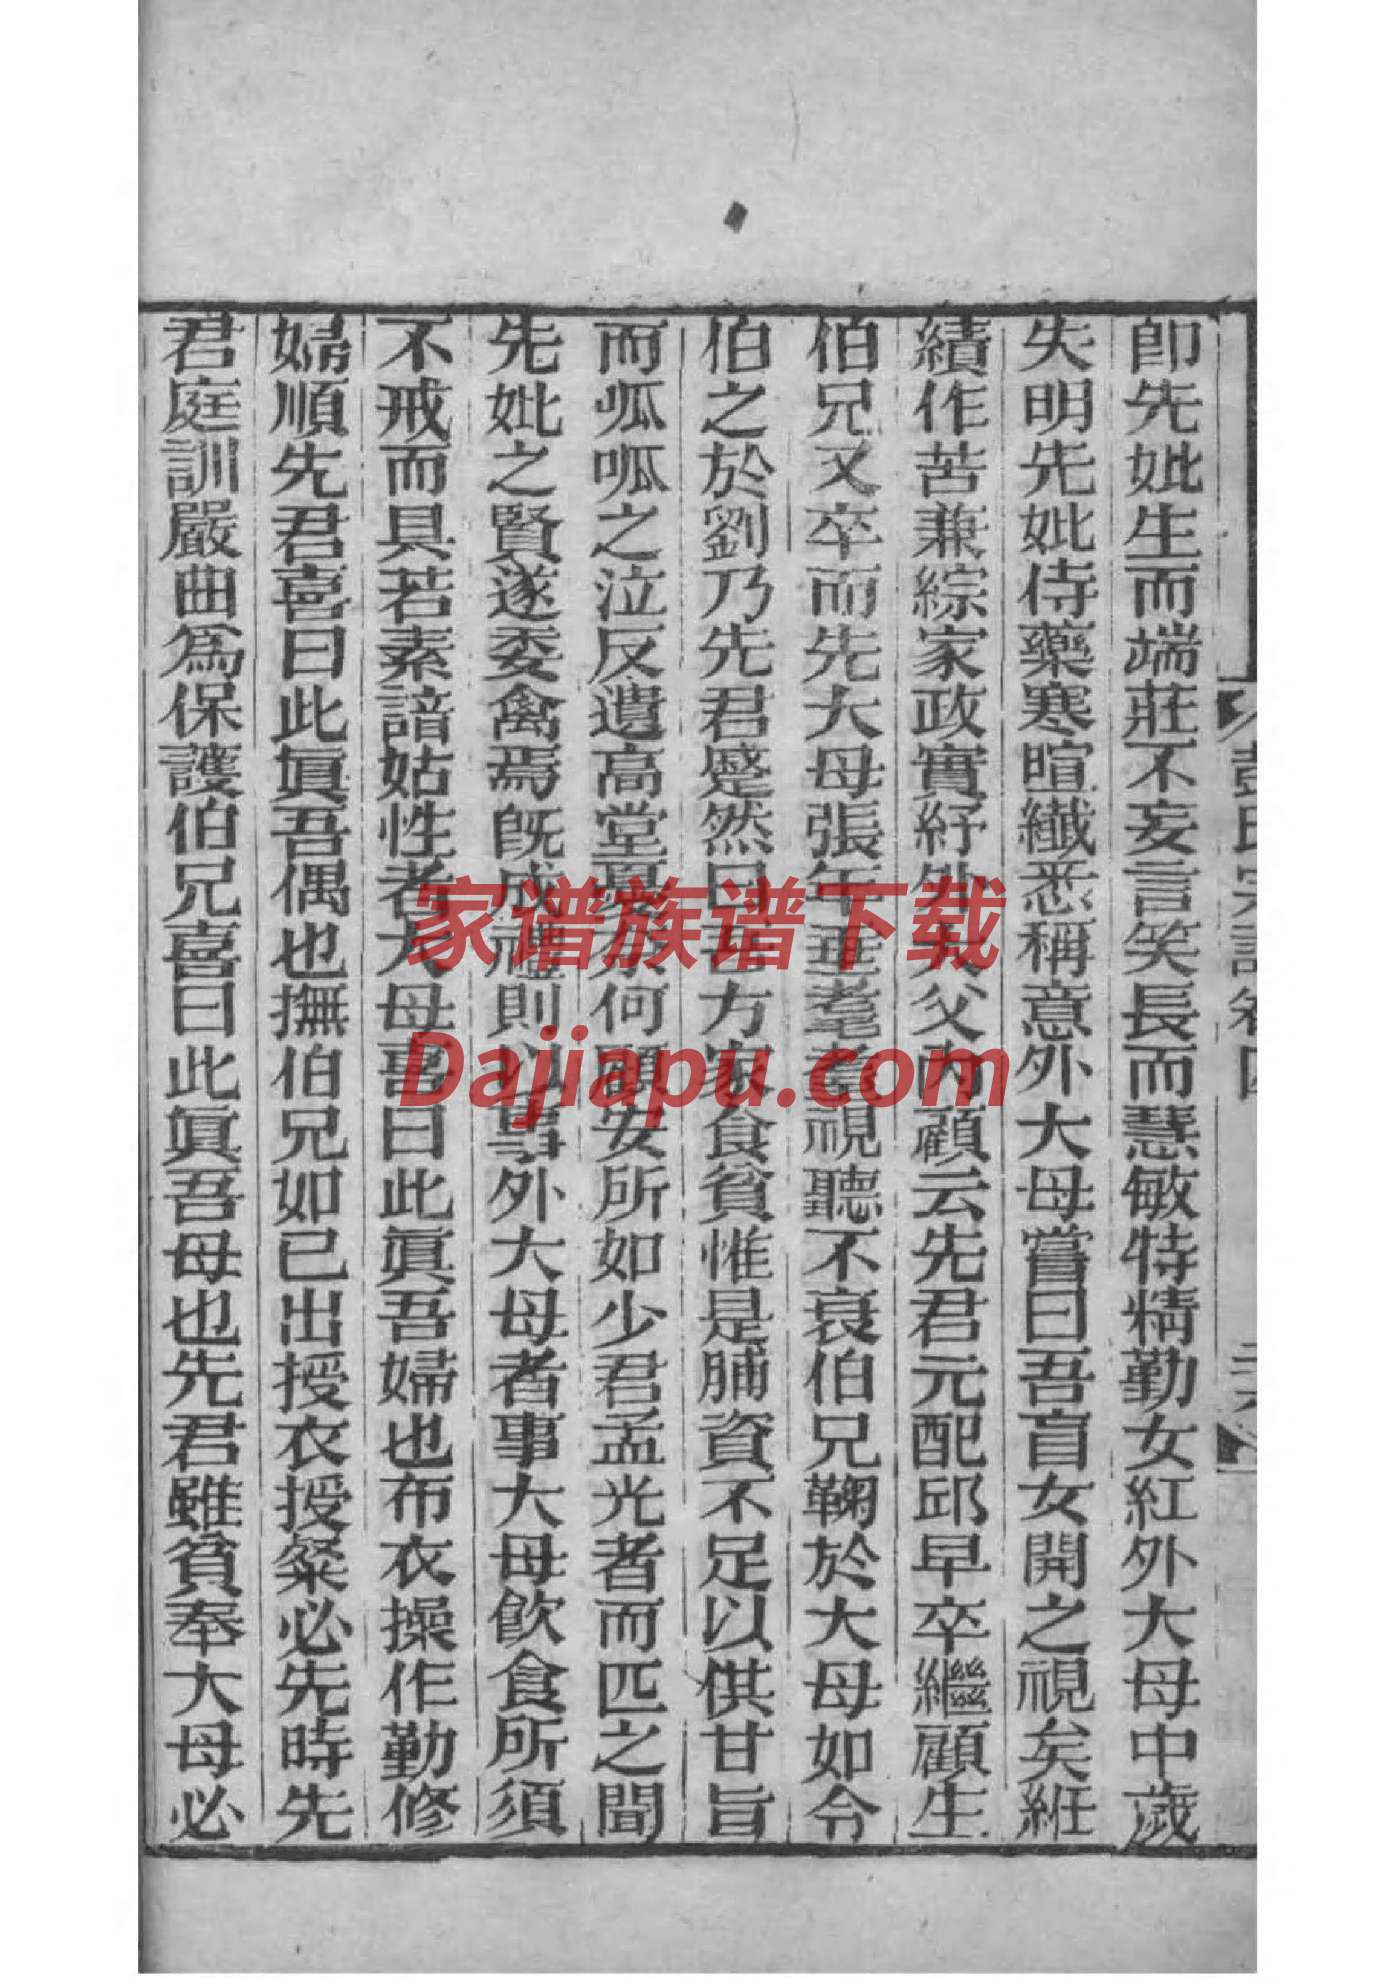 彭氏宗譜卷四
二六
卽先妣生而端莊不妄言笑長而慧敏特精勤女紅外大母中歲
失明先妣侍藥寒暄纖悉稱意外大母嘗曰吾盲女開之視矣紝
績作苦兼綜家政實紓外大父內顧云先君元配邱早卒繼顧生
伯兄又卒而先大母張年垂耄耋視聽不衰伯兄鞠於大母如令
伯之於劉乃先君蹙然曰吾方家食貧惟是脯資不足以供甘旨
而呱呱之泣反遺高堂憂奈何顧安所如少君孟光者而匹之聞
先妣之賢遂委禽焉旣成禮則以事外大母者事大母飮食所須
不戒而具若素諳姑性者大母喜曰此眞吾婦也布衣操作勤修
婦順先君喜曰此眞吾偶也撫伯兄如已出授衣授粲必先時先
君庭訓嚴曲爲保護伯兄喜曰此眞吾母也先君雖貧奉大母必
家谱族谱下载
Dajiapu.com